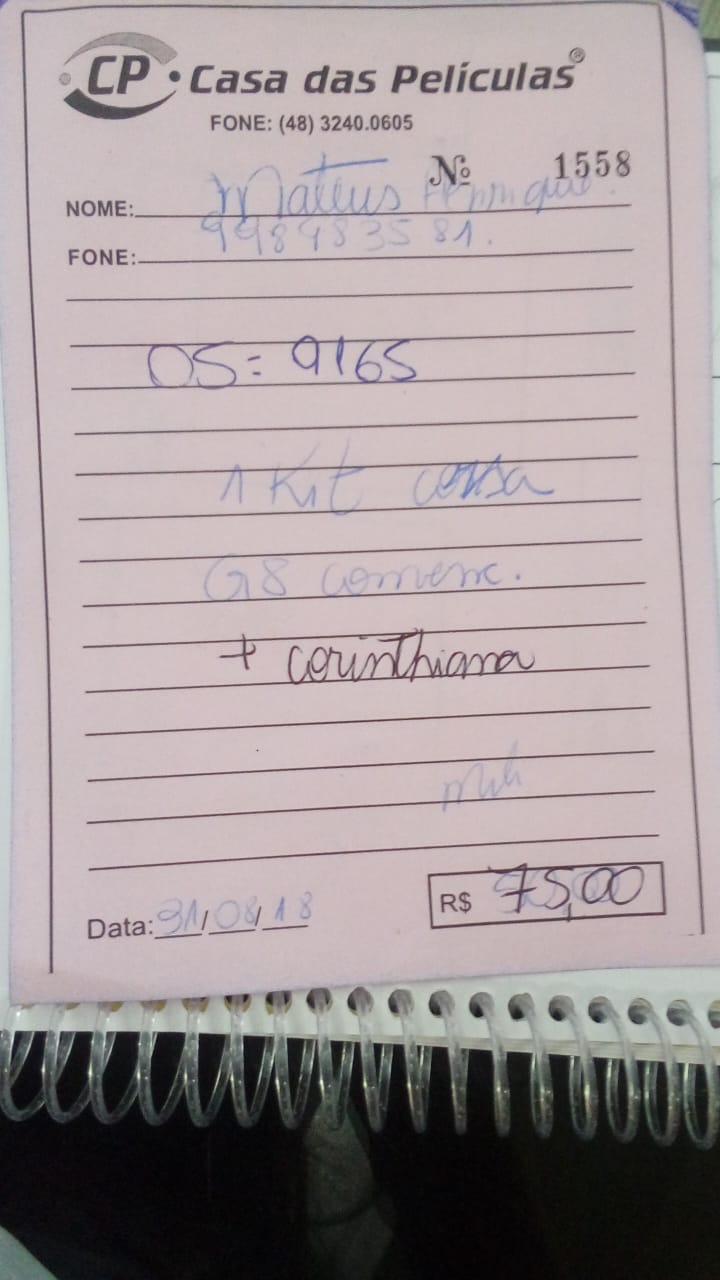 CP • Casa das Películas®
FONE: (48) 3240.0605
Nº 1558
NOME: Mateus Henrique.
FONE: 998483581.
OS: 9165
1 Kit corsa
G8 comerc.
+ corinthiana
Data: 31/08/18
R$ 75,00